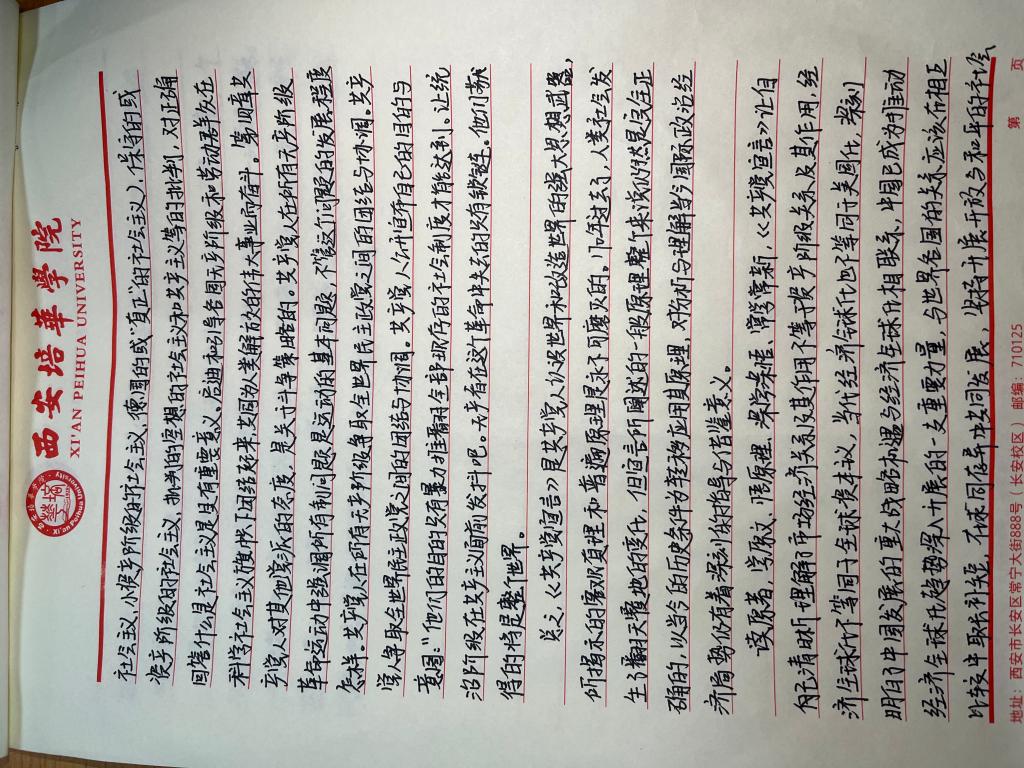 西安培華學院
XI'AN PEIHUA UNIVERSITY
社会主义,小资产阶级的社会主义,德国的或"真正"的社会主义),保守的或
资产阶级的社会主义,批判的空想的社会主义和共产主义等的批判,对正确
回答什么是社会主义是具有重要意义。启迪和引导各国无产阶级和劳动群众在
科学社会主义旗帜下团结起来,共同为人类解放的伟大事业而奋斗。第四章共
产党人对其他党派的态度,是关于斗争策略的。共产党人在所有无产阶级
革命运动中强调所有制问题是运动的基本问题,不管这个问题的发展程度
怎样。共产党人在所有无产阶级争取全世界民主政党之间的团结与协调。共产
党人争取全世界民主政党之间的团结与协调。共产党人公开宣布自己的目的与
意图:"他们的目的只有暴力推翻全部现存的社会制度才能达到、让统
治阶级在共产主义面前发抖吧。无产者在这个革命中失去的只有锁链。他们获
得的将是整个世界。
总之,《共产党宣言》是共产党人认识世界和改造世界的强大思想武器,
所揭示的客观真理和普遍原理是永不可磨灭的。几年过去了,人类社会发
生了翻天覆地的变化,但宣言所阐述的一般原理整个来说仍然是完全正
确的,以当今的历史条件为转移应用其原理,对分析与理解当今国际政治经
济局势仍有着深刻的指导与借鉴意义。
读原著,学原文、悟原理。常学常悟、常学常新,《共产党宣言》让我
自己清晰理解了市场经济关系及其作用不等于资产阶级关系及其作用,经
济全球化不等同于全球资本主义,当代经济全球化也不等同于美国化,深刻
明白了中国发展的重大战略机遇与经济全球化相联系,中国已成为推动
经济全球化趋势深入开展的一支重要力量,与世界各国的关系应该在相互
比较中取长补短,在求同存异中共同发展,坚持开展开放与和平的社会
地址:西安市长安区常宁大街888号(长安校区) 邮编:710125 第 页